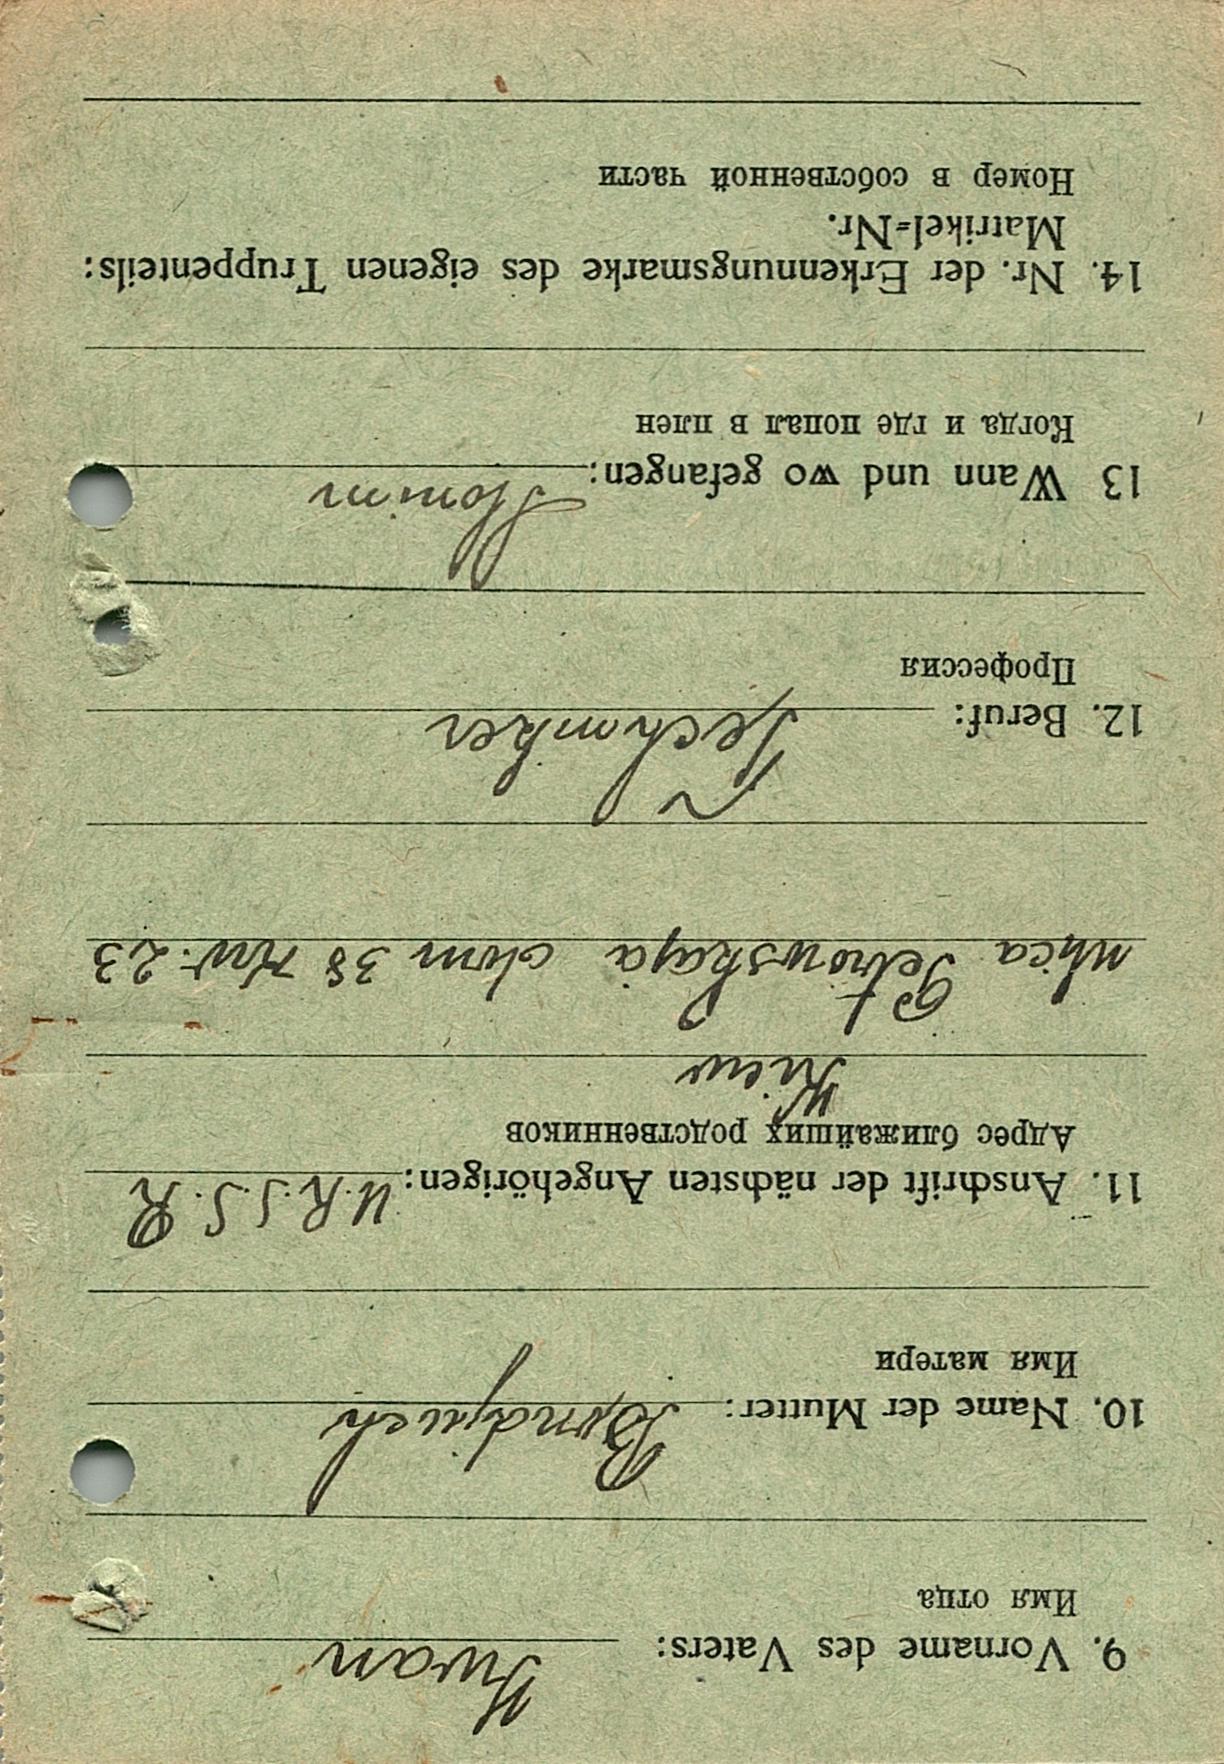 9. Vorname des Vaters: Iwan
Имя отца
10. Name der Mutter:
Имя матери
11. Anschrift der nächsten Angehörigen: U.R.S.S.R
Адрес ближайших родственников
Kiew
ulica Petrowskaja dom 38 Kw. 23
12. Beruf: Techniker
Профессия
13 Wann und wo gefangen: Slonim
Когда и где попал в плен
14. Nr. der Erkennungsmarke des eigenen Truppenteils:
Matrikel=Nr.
Номер в собственной части